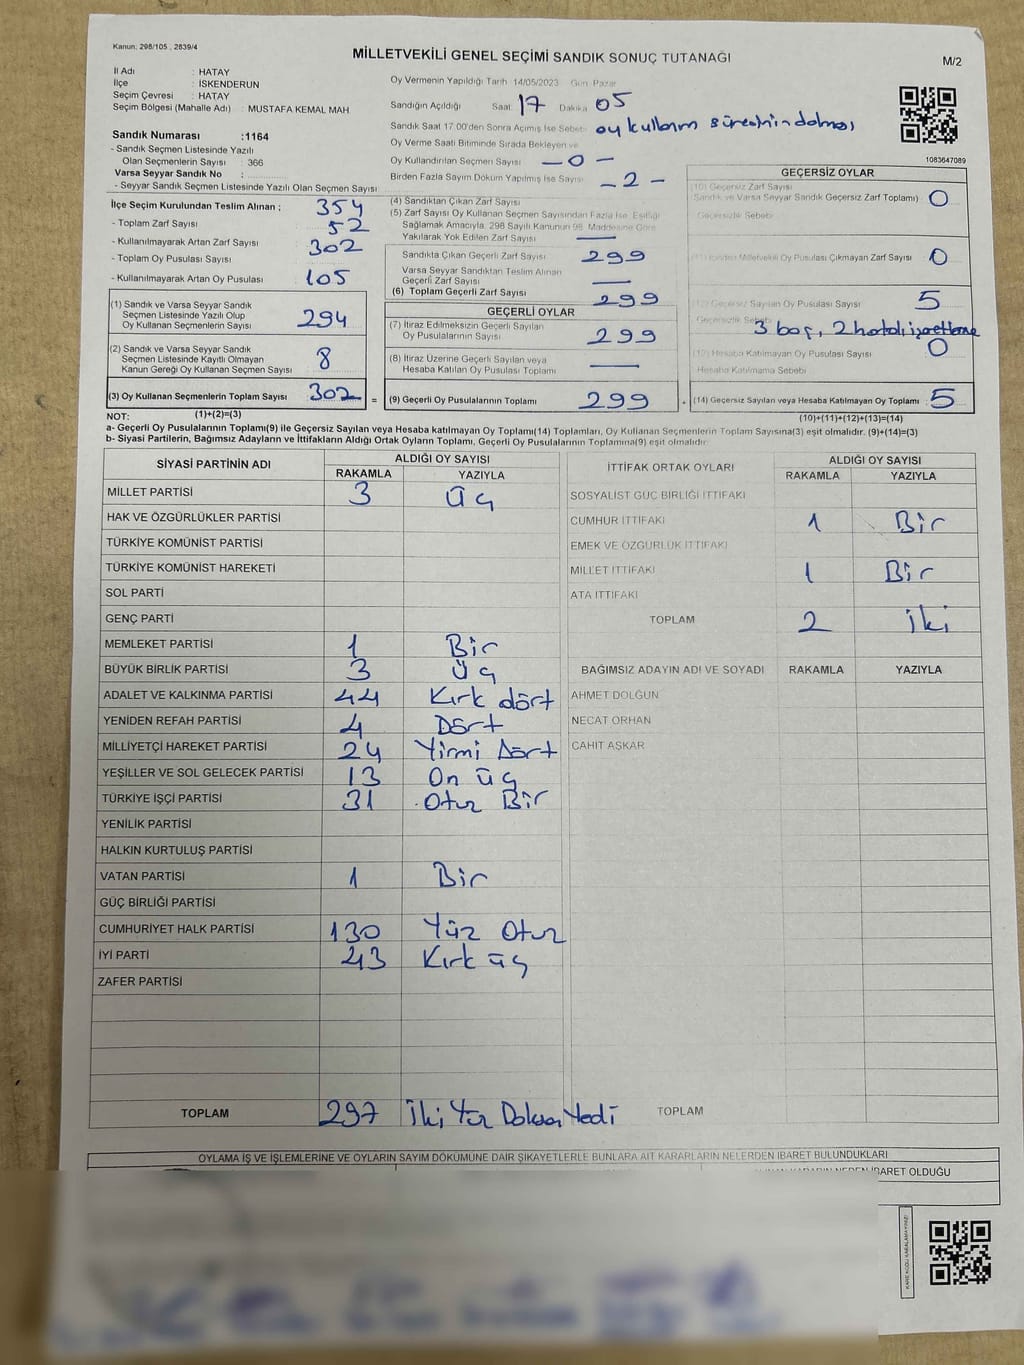 Kanun: 298/105 , 2839/4
MİLLETVEKİLİ GENEL SEÇİMİ SANDIK SONUÇ TUTANAĞI
M/2
İl Adı : HATAY
İlçe : İSKENDERUN
Seçim Çevresi : HATAY
Seçim Bölgesi (Mahalle Adı) : MUSTAFA KEMAL MAH
Sandık Numarası :1164
- Sandık Seçmen Listesinde Yazılı
Olan Seçmenlerin Sayısı : 366
Varsa Seyyar Sandık No :
- Seyyar Sandık Seçmen Listesinde Yazılı Olan Seçmen Sayısı
Oy Vermenin Yapıldığı Tarih 14/05/2023 Gün Pazar
Sandığın Açıldığı Saat 17 Dakika 05
Sandık Saat 17.00'den Sonra Açılmış İse Sebebi oy kullanım süresinin dolması
Oy Verme Saati Bitiminde Sırada Bekleyen ve
Oy Kullandırılan Seçmen Sayısı —0—
Birden Fazla Sayım Döküm Yapılmış İse Sayısı -2-
1083647089
İlçe Seçim Kurulundan Teslim Alınan ; 354
- Toplam Zarf Sayısı 52
- Kullanılmayarak Artan Zarf Sayısı 302
- Toplam Oy Pusulası Sayısı
- Kullanılmayarak Artan Oy Pusulası 105
(1) Sandık ve Varsa Seyyar Sandık
Seçmen Listesinde Yazılı Olup
Oy Kullanan Seçmenlerin Sayısı 294
(2) Sandık ve Varsa Seyyar Sandık
Seçmen Listesinde Kayıtlı Olmayan
Kanun Gereği Oy Kullanan Seçmen Sayısı 8
(3) Oy Kullanan Seçmenlerin Toplam Sayısı 302 =
(1)+(2)=(3)
(4) Sandıktan Çıkan Zarf Sayısı
(5) Zarf Sayısı Oy Kullanan Seçmen Sayısından Fazla İse, Eşitliği
Sağlamak Amacıyla, 298 Sayılı Kanunun 98. Maddesine Göre
Yakılarak Yok Edilen Zarf Sayısı —
Sandıkta Çıkan Geçerli Zarf Sayısı 299
Varsa Seyyar Sandıktan Teslim Alınan
Geçerli Zarf Sayısı —
(6) Toplam Geçerli Zarf Sayısı 299
GEÇERLİ OYLAR
(7) İtiraz Edilmeksizin Geçerli Sayılan
Oy Pusulalarının Sayısı 299
(8) İtiraz Üzerine Geçerli Sayılan veya
Hesaba Katılan Oy Pusulası Toplamı —
(9) Geçerli Oy Pusulalarının Toplamı 299
GEÇERSİZ OYLAR
(10) Geçersiz Zarf Sayısı
(Sandık ve Varsa Seyyar Sandık Geçersiz Zarf Toplamı) 0
Geçersizlik Sebebi
Milletvekili Oy Pusulası Çıkmayan Zarf Sayısı 0
(12) Geçersiz Sayılan Oy Pusulası Sayısı 5
Geçersizlik Sebebi 3 boş, 2 hatalı işaretleme
Hesaba Katılmayan Oy Pusulası Sayısı 0
Hesaba Katılmama Sebebi
(14) Geçersiz Sayılan veya Hesaba Katılmayan Oy Toplamı 5
(10)+(11)+(12)+(13)=(14)
NOT:
a- Geçerli Oy Pusulasının Toplamı(9) ile Geçersiz Sayılan veya Hesaba katılmayan Oy Toplamı(14) Toplamları, Oy Kullanan Seçmenlerin Toplam Sayısına(3) eşit olmalıdır. (9)+(14)=(3)
b- Siyasi Partilerin, Bağımsız Adayların ve İttifakların Aldığı Ortak Oyların Toplamı, Geçerli Oy Pusulalarının Toplamına(9) eşit olmalıdır.
SİYASİ PARTİNİN ADI ALDIĞI OY SAYISI
RAKAMLA YAZIYLA
MİLLET PARTİSİ 3 Üç
HAK VE ÖZGÜRLÜKLER PARTİSİ
TÜRKİYE KOMÜNİST PARTİSİ
TÜRKİYE KOMÜNİST HAREKETİ
SOL PARTİ
GENÇ PARTİ
MEMLEKET PARTİSİ 1 Bir
BÜYÜK BİRLİK PARTİSİ 3 Üç
ADALET VE KALKINMA PARTİSİ 44 Kırk dört
YENİDEN REFAH PARTİSİ 4 Dört
MİLLİYETÇİ HAREKET PARTİSİ 24 Yirmi Dört
YEŞİLLER VE SOL GELECEK PARTİSİ 13 On üç
TÜRKİYE İŞÇİ PARTİSİ 31 Otuz Bir
YENİLİK PARTİSİ
HALKIN KURTULUŞ PARTİSİ
VATAN PARTİSİ 1 Bir
GÜÇ BİRLİĞİ PARTİSİ
CUMHURİYET HALK PARTİSİ 130 Yüz Otuz
İYİ PARTİ 43 Kırk üç
ZAFER PARTİSİ
TOPLAM 297 İki Yüz Doksan Yedi
İTTİFAK ORTAK OYLARI ALDIĞI OY SAYISI
RAKAMLA YAZIYLA
SOSYALİST GÜÇ BİRLİĞİ İTTİFAKI
CUMHUR İTTİFAKI 1 Bir
EMEK VE ÖZGÜRLÜK İTTİFAKI
MİLLET İTTİFAKI 1 Bir
ATA İTTİFAKI
TOPLAM 2 İki
BAĞIMSIZ ADAYIN ADI VE SOYADI RAKAMLA YAZIYLA
AHMET DOLĞUN
NECAT ORHAN
CAHİT AŞKAR
TOPLAM
OYLAMA İŞ VE İŞLEMLERİNE VE OYLARIN SAYIM DÖKÜMÜNE DAİR ŞİKAYETLERLE BUNLARA AİT KARARLARIN NELERDEN İBARET BULUNDUKLARI
İBARET OLDUĞU
KARE KODU KARALAMAYINIZ!